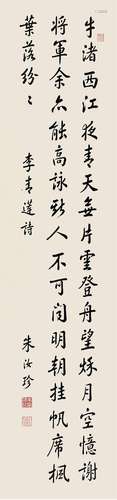 牛渚西江夜青天無片雲登舟望秋月空憶謝
將軍余亦能高詠斯人不可聞明朝挂帆席楓
葉落紛〻
李青蓮詩
朱汝珍